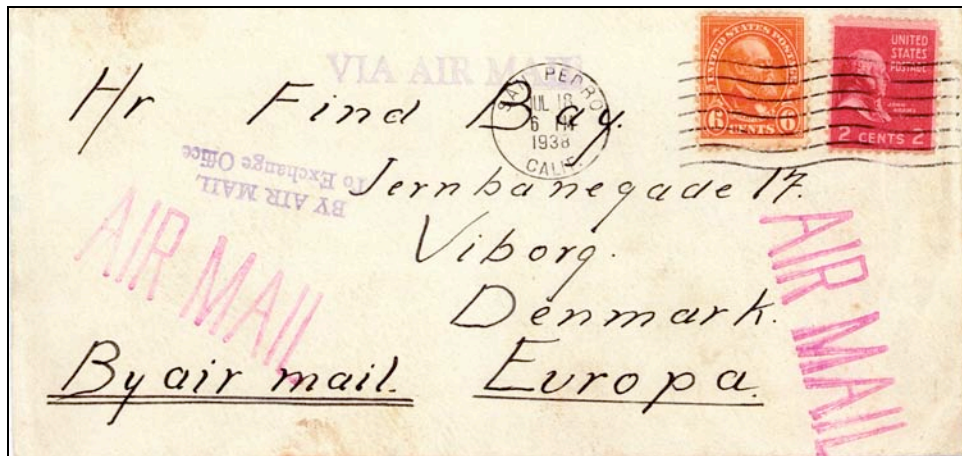 VIA AIR MAIL
SAN PEDRO
JUL 18
6 PM
1938
CALIF.
UNITED STATES POSTAGE
6 CENTS 6
UNITED
STATES
POSTAGE
JOHN
ADAMS
2 CENTS 2
Hr Find Bay.
BY AIR MAIL
To Exchange Office
Jernbanegade 17.
Viborg.
Denmark.
By air mail. Europa.
AIR MAIL
AIR MAIL